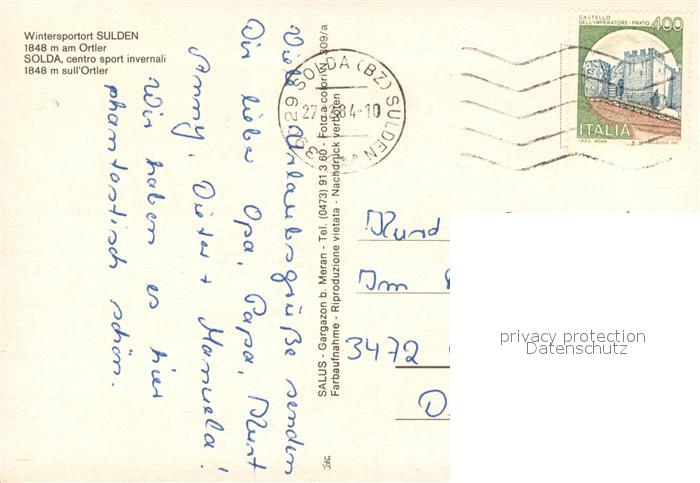 Wintersportort SULDEN
1848 m am Ortler
SOLDA, centro sport invernali
1848 m sull'Ortler
Viele Urlaubsgrüße senden
Dir lieber Opa, Papa, Kurt
Anny, Dieter + Manuela!
Wir haben es hier
phantastisch schön.
SALUS - Gargazon b. Meran - Tel. (0473) 91 3 60 - Foto a colori
Farbaufnahme - Riproduzione vietata - Nachdruck verboten
SOLDA (BZ) SULDEN
84-10
CASTELLO
DELL'IMPERATORE - PRATO
400
ITALIA
I.P.Z.S. ROMA
Im
3472
privacy protection
Datenschutz